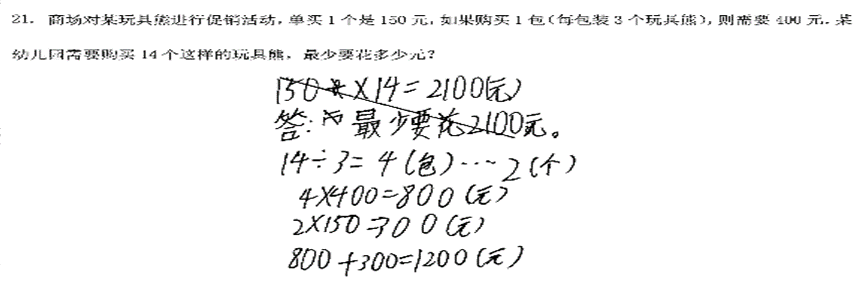 21. 商场对某玩具熊进行促销活动，单买1个是150元，如果购买1包（每包装3个玩具熊），则需要400元。某
幼儿园需要购买14个这样的玩具熊，最少要花多少元？
150×14=2100(元)
答：最少要花2100元。
14÷3=4(包)……2(个)
4×400=800(元)
2×150=300(元)
800+300=1200(元)